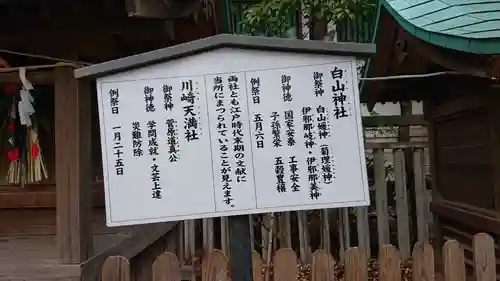 白山神社
御祭神　白山媛神(菊理媛神)
伊邪那岐神・伊邪那美神
御神徳　国家安泰　工事安全
子孫繁栄　五穀豊穣
例祭日　五月六日
両社とも江戸時代末期の文献に
当所にまつられていることが見えます。
川崎天満社
御祭神　菅原道真公
御神徳　学問成就・文芸上達
災難防除
例祭日　一月二十五日